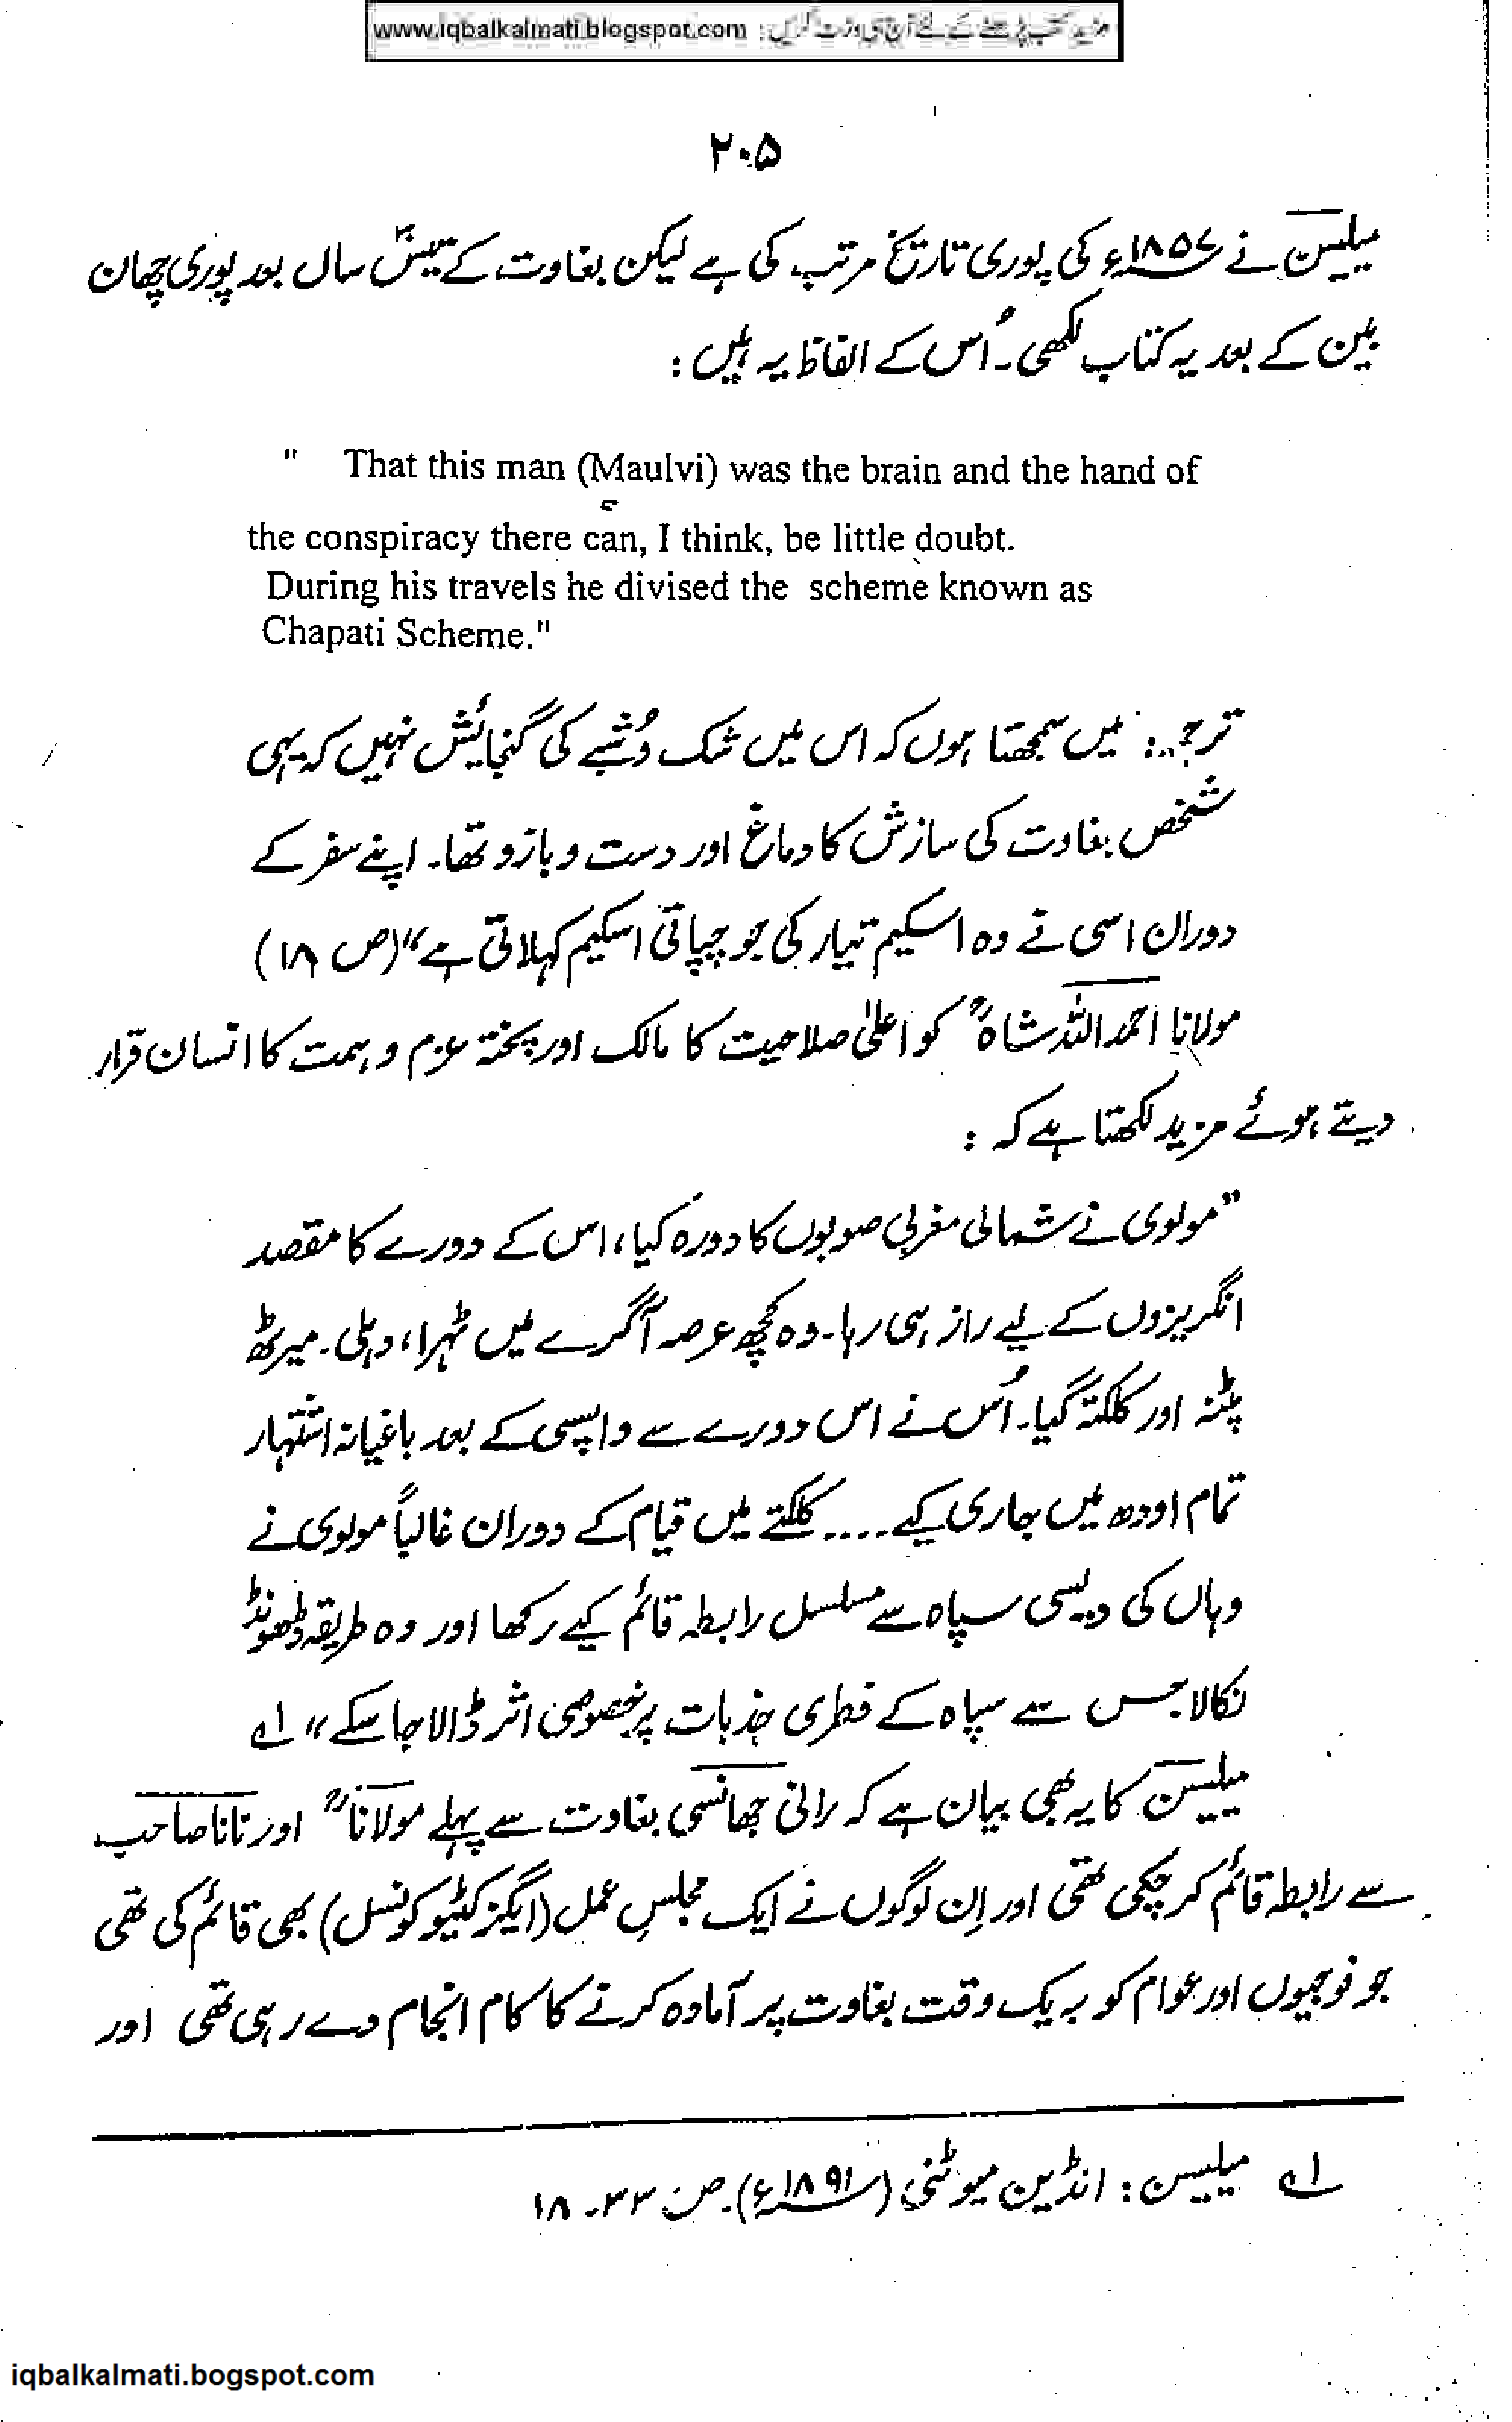 www.iqbalkalmati.blogspot.com : مزید کتب پڑھنے کے لئے آج ہی وزٹ کریں
۲۰۵
میلیسن نے ۱۸۵۷ء کی پوری تاریخ مرتب کی ہے لیکن بغاوت کے تیئیس سال بعد پوری چھان
بین کے بعد یہ کتاب لکھی۔ اُس کے الفاظ یہ ہیں :
" That this man (Maulvi) was the brain and the hand of
the conspiracy there can, I think, be little doubt.
During his travels he divised the scheme known as
Chapati Scheme."
ترجمہ: میں سمجھتا ہوں کہ اس میں شک و شُبے کی گنجائش نہیں کہ یہی
شخص بغاوت کی سازش کا دماغ اور دست و بازو تھا۔ اپنے سفر کے
دوران اسی نے وہ اسکیم تیار کی جو چپاتی اسکیم کہلاتی ہے“ (ص ۱۸)
مولانا احمد اللہ شاہؒ کو اعلیٰ صلاحیت کا مالک اور پختہ عزم و ہمت کا انسان قرار
دیتے ہوئے مزید لکھتا ہے کہ :
”مولوی نے شمالی مغربی صوبوں کا دورہ کیا، اس کے دورے کا مقصد
انگریزوں کے لیے راز ہی رہا۔ وہ کچھ عرصہ آگرے میں ٹہرا، دہلی۔ میرٹھ
پٹنہ اور کلکتہ گیا۔ اُس نے اس دورے سے واپسی کے بعد باغیانہ اشتہار
تمام اودھ میں جاری کیے .... کلکتے میں قیام کے دوران غالباً مولوی نے
وہاں کی دیسی سپاہ سے مسلسل رابطہ قائم کیے رکھا اور وہ طریقہ ڈھونڈ
نکالا جس سے سپاہ کے فطری جذبات پر خصوصی اثر ڈالا جا سکے“ ۱ے
میلیسن کا یہ بھی بیان ہے کہ رانی جھانسی بغاوت سے پہلے مولاناؒ اور نانا صاحب
سے رابطہ قائم کر چکی تھی اور اِن لوگوں نے ایک مجلسِ عمل (ایگزکٹیو کونسل) بھی قائم کی تھی
جو فوجیوں اور عوام کو بہ یک وقت بغاوت پر آمادہ کرنے کا کام انجام دے رہی تھی اور
۱ے میلیسن : انڈین میوٹنی (۱۸۹۱ء)۔ ص ۳۳ - ۱۸
iqbalkalmati.bogspot.com